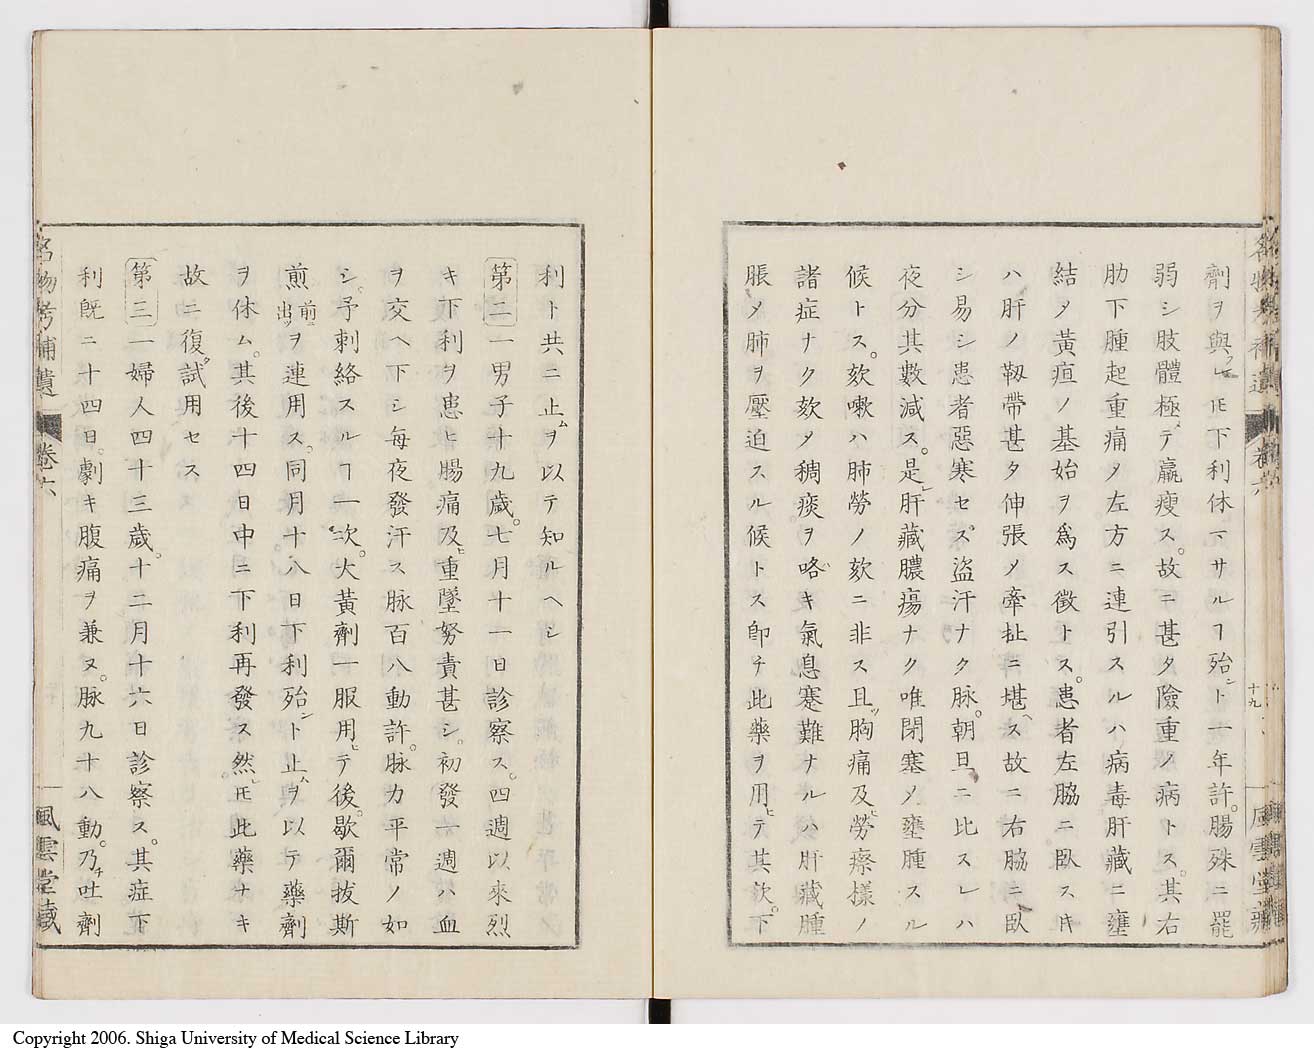 名物考補遺 卷六 十九 風雲堂藏
劑ヲ與フレ𪜈下利休マサルヿ殆ント一年許。腸殊ニ罷
弱シ肢體極メテ羸瘦ス。故ニ甚タ險重ノ病トス。其右
肋下腫起重痛〆左方ニ連引スルハ病毒肝藏ニ壅
結〆黃疸ノ基始ヲ爲ス徵トス。患者左脇ニ臥スキ
ハ肝ノ靱帶甚タ伸張〆牽扯ニ堪ヘス故ニ右脇ニ臥
シ易シ患者惡寒セス盜汗ナク脉。朝旦ニ比スレハ
夜分其數減ス。是レ肝藏膿瘍ナク唯閉塞〆壅腫スル
候トス。欬嗽ハ肺勞ノ欬ニ非ス且ツ胸痛及ヒ勞瘵樣ノ
諸症ナク欬〆稠痰ヲ咯ハキ氣息蹇難ナルハ肝藏腫
脹〆肺ヲ壓迫スル候トス卽チ此藥ヲ用ヒテ其欬。下
利ト共ニ止ムヲ以テ知ルヘシ
第二一男子十九歲。七月十一日診察ス。四週以來烈
キ下利ヲ患ヒ腸痛及ヒ重墜努責甚シ。初發一週ハ血
ヲ交ヘ下シ每夜發汗ス脉百八動許。脉力平常ノ如
シ。予刺絡スルヿ一次。大黃劑一服用ヒテ後。歇爾拔斯
煎前ニ出ツヲ連用ス。同月十八日下利殆ント止ムヲ以テ藥劑
ヲ休ム。其後十四日中ニ下利再發ス然レ𪜈此藥ナキ
故ニ復タ試用セス
第三一婦人四十三歲。十二月十六日診察ス。其症下
利旣ニ十四日。劇キ腹痛ヲ兼ヌ。脉九十八動。乃チ吐劑
名物考補遺 卷六 風雲堂藏
Copyright 2006. Shiga University of Medical Science Library